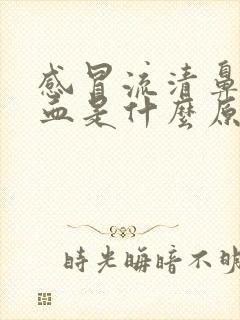 感冒流清鼻
血是什麼原
時光晦暗不明